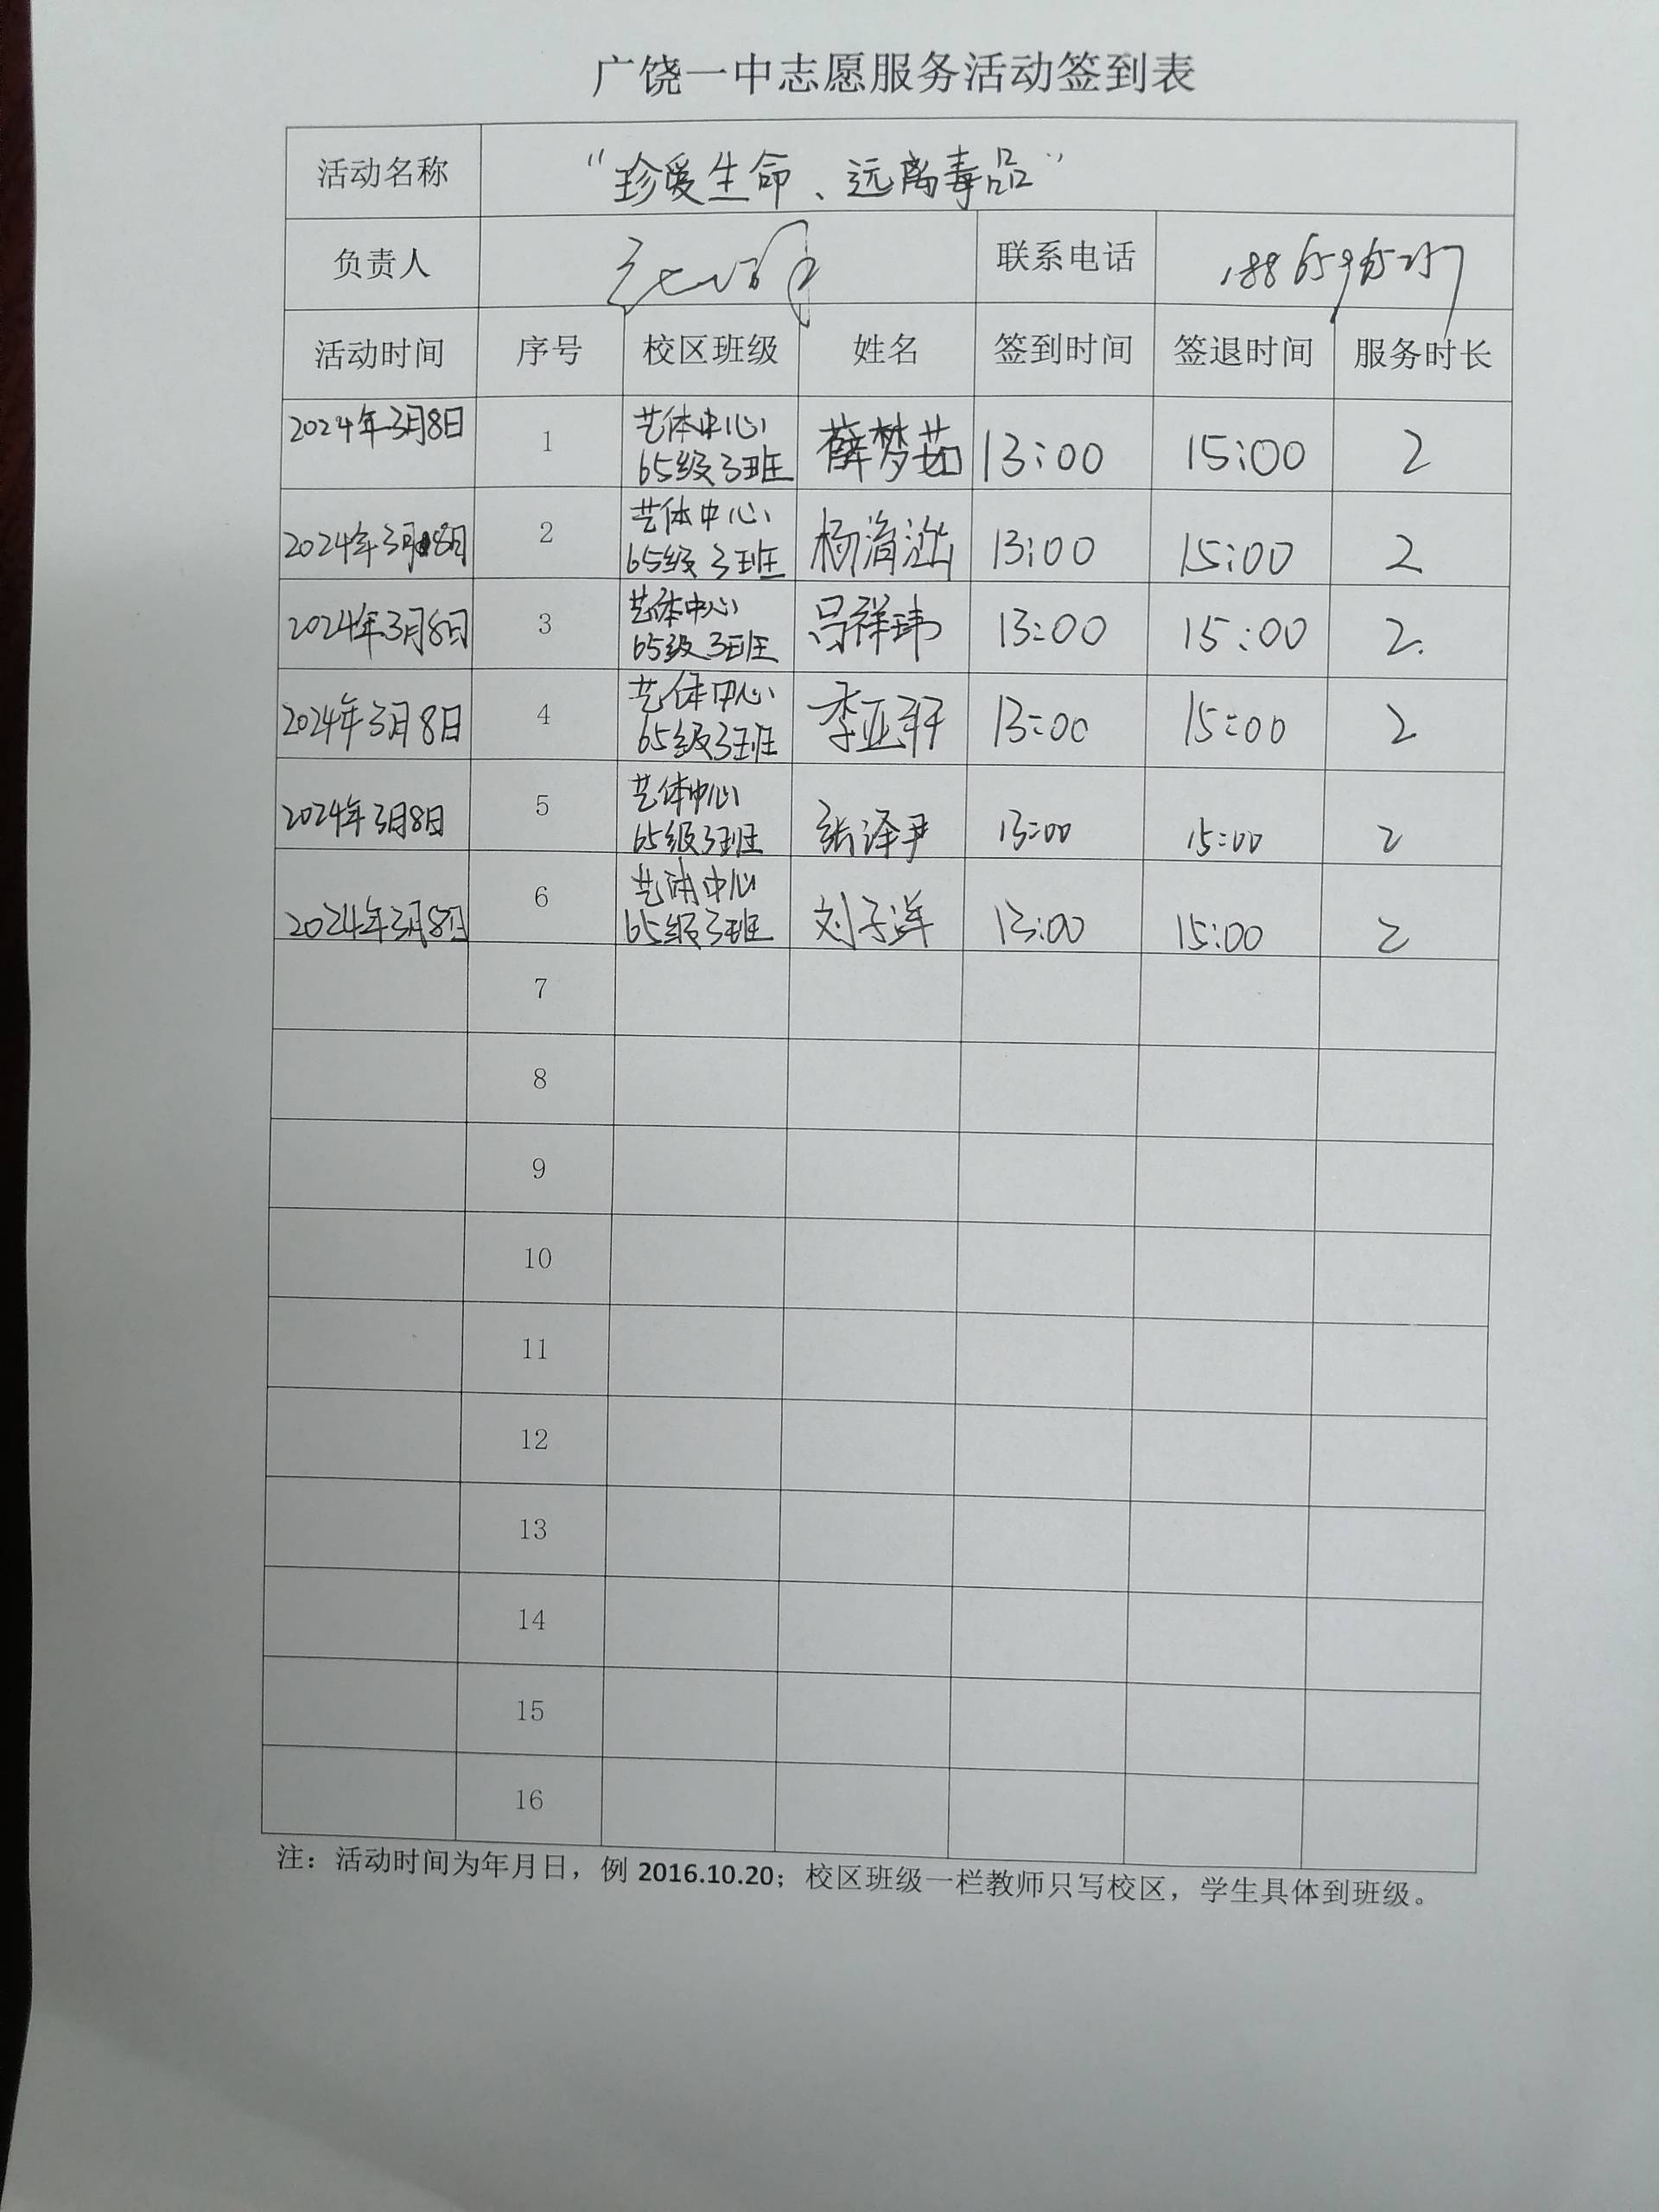 广饶一中志愿服务活动签到表
活动名称 “珍爱生命、远离毒品”
负责人 联系电话
活动时间 序号 校区班级 姓名 签到时间 签退时间 服务时长
2024年3月8日 1 艺体中心 薛梦茹 13:00 15:00 2
65级3班
2024年3月8日 2 艺体中心 杨 13:00 15:00 2
65级3班
2024年3月8日 3 艺体中心 吕祥玮 13:00 15:00 2.
65级3班
2024年3月8日 4 艺体中心 李亚轩 13:00 15:00 2
65级3班
2024年3月8日 5 艺体中心 张泽尹 13:00 15:00 2
65级3班
2024年3月8日 6 艺体中心 刘子洋 13:00 15:00 2
65级3班
7
8
9
10
11
12
13
14
15
16
注：活动时间为年月日，例 2016.10.20；校区班级一栏教师只写校区，学生具体到班级。